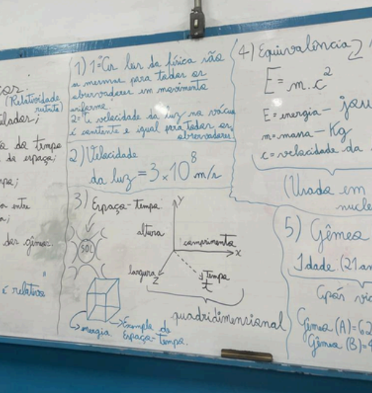 (Relatividade
restrita)
do tempo
e do espaço;
entre
dos gêmeos
é relativo"
1) 1º "As leis da física são
as mesmas para todos os
observadores em movimento
uniforme"
2º "A velocidade da luz no vácuo
é constante e igual para todos os
observadores"
2) Velocidade
da luz = 3 × 10⁸ m/s
3) Espaço-Tempo
SOL
Y
altura
comprimento
X
largura
Z
tempo
t
quadridimensional
energia
Exemplo de
Espaço-Tempo
4) Equivalência
E = m.c²
E = energia - jou
m = massa - Kg
c = velocidade da
(Usada em
nucle
5) Gêmeos
Idade (21 an
Após vi
Gêmeo (A) = 62
Gêmeo (B) = 4